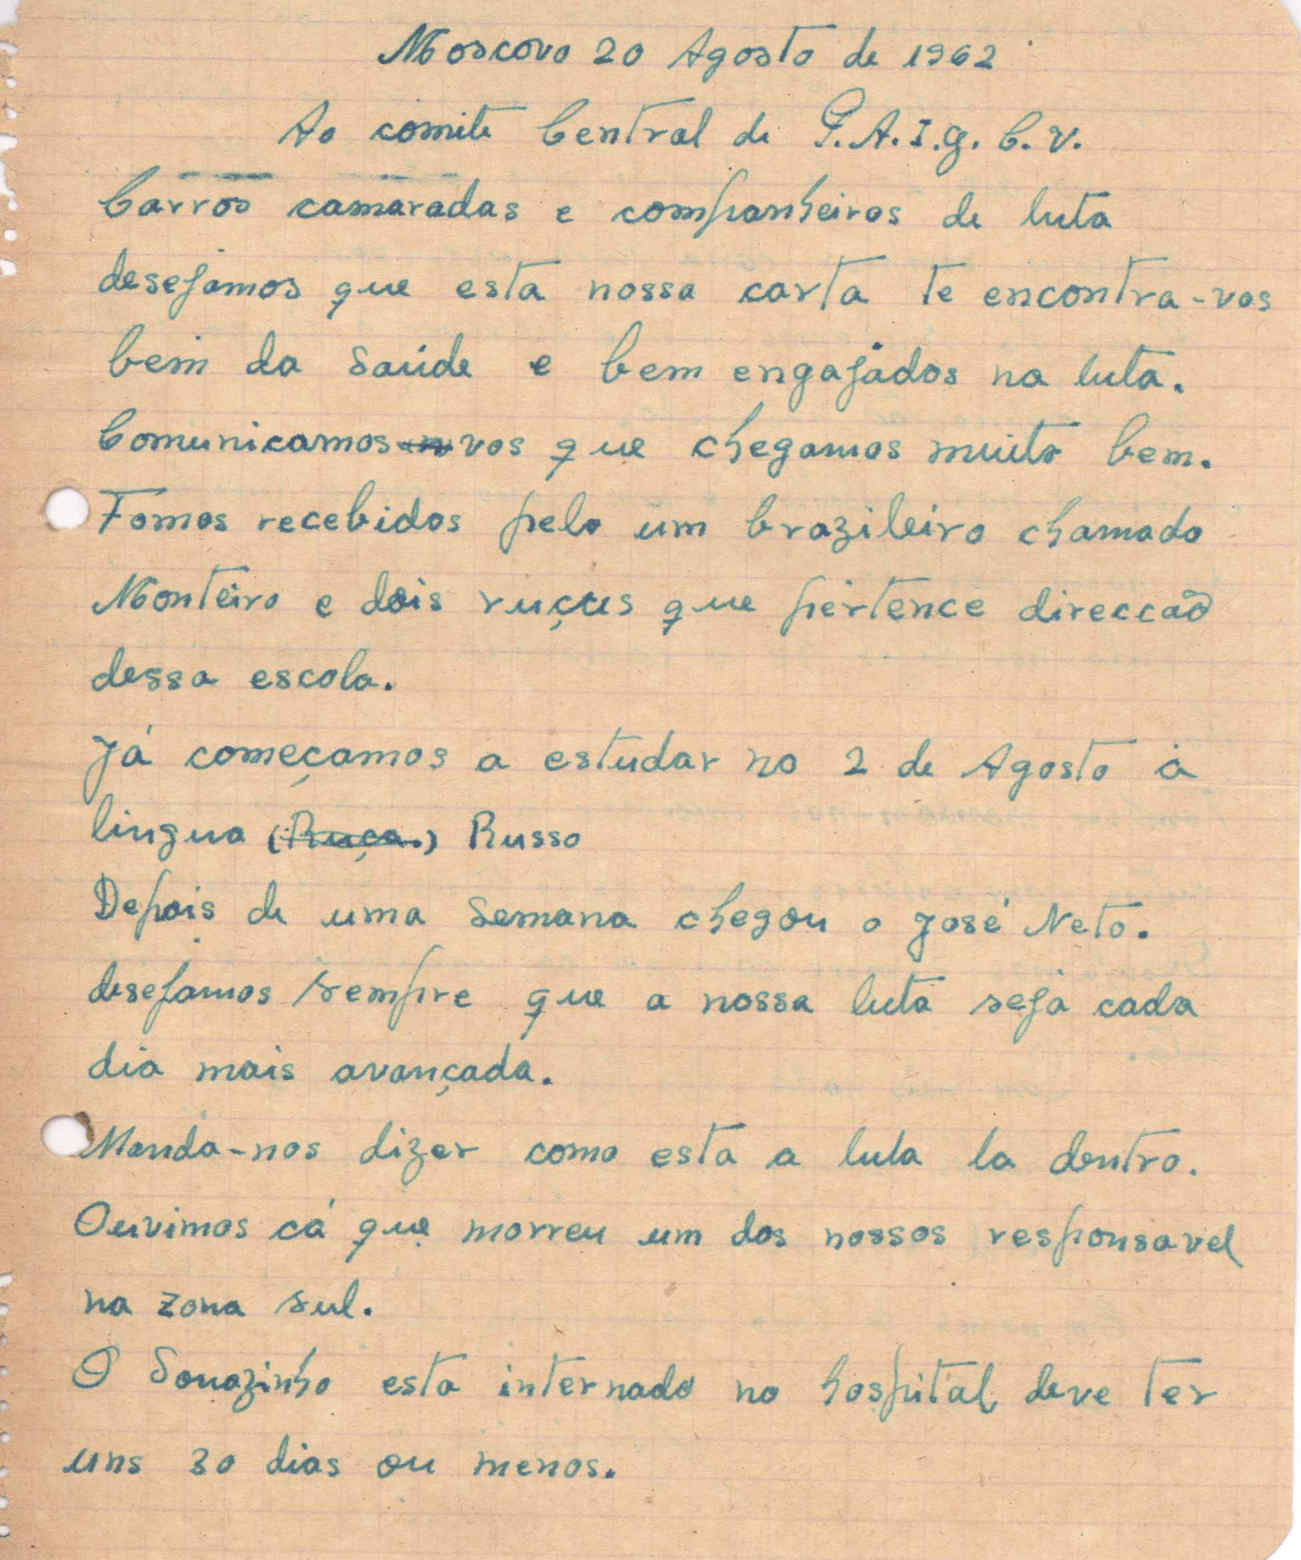 Moscovo 20 Agosto de 1962
Ao comite Central de P.A.I.G.C.V.
Carros camaradas e companheiros de luta
desejamos que esta nossa carta te encontra-vos
bem da saúde e bem engajados na luta.
Comunicamos-vos que chegamos muito bem.
Fomos recebidos pelo um brazileiro chamado
Monteiro e dois ruços que pertence direccão
dessa escola.
Já começamos a estudar no 2 de Agosto á
lingua (Ruça.) Russo
Depois de uma semana chegou o José Neto.
desejamos sempre que a nossa luta seja cada
dia mais avançada.
Manda-nos dizer como esta a luta la dentro.
Ouvimos cá que morreu um dos nossos responsavel
na zona sul.
O Souazinho esta internado no hospital deve ter
uns 30 dias ou menos.